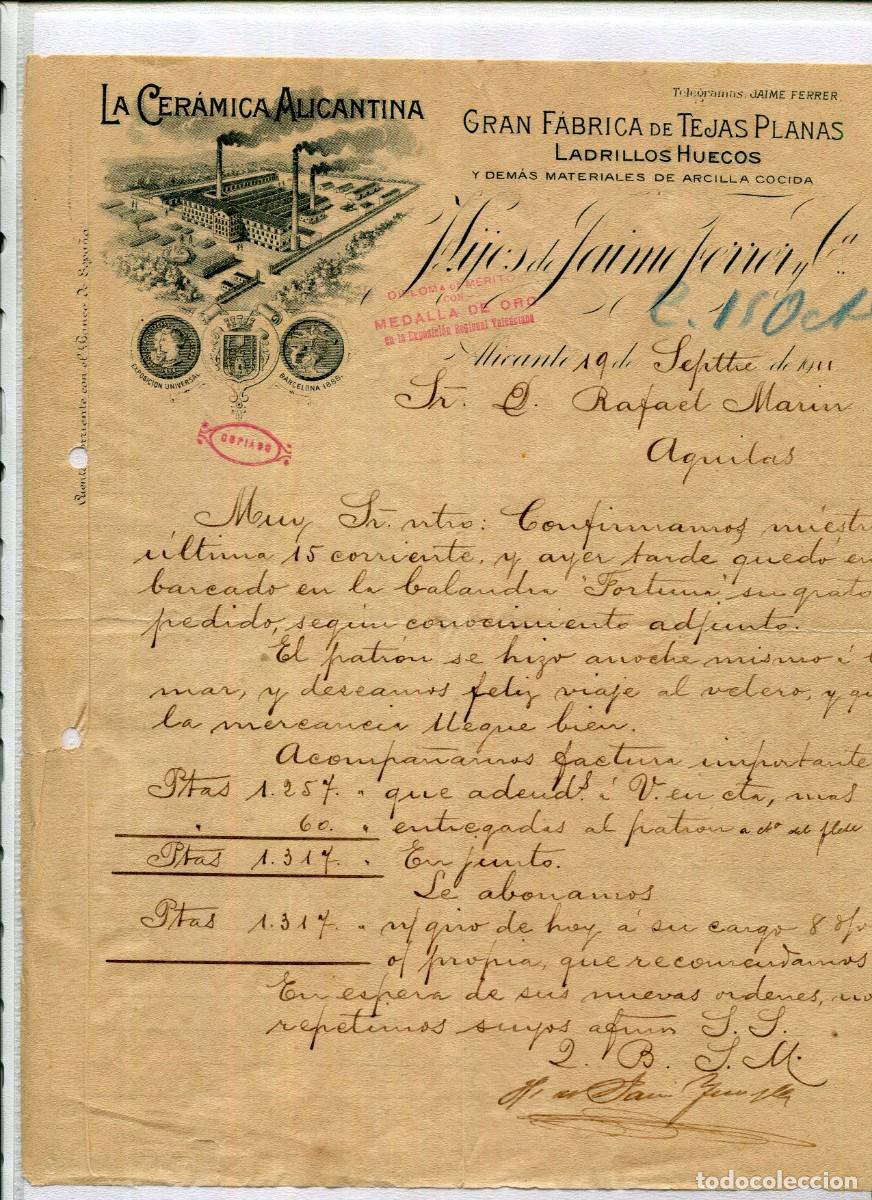 Telegramas: JAIME FERRER
LA CERÁMICA ALICANTINA
GRAN FÁBRICA DE TEJAS PLANAS
LADRILLOS HUECOS
Y DEMÁS MATERIALES DE ARCILLA COCIDA
Hijos de Jaime Ferrer y Cª
DIPLOMA DE MERITO
CON
MEDALLA DE ORO
en la Exposición Regional Valenciana
2. 15 Oct
EXPOSICION UNIVERSAL
BARCELONA 1888
Alicante 19 de Septtre de 1911
Sr. D. Rafael Marin
Aguilas
COPIADO
Cuenta corriente con el Banco de España
Muy Sr. ntro: Confirmamos nuestr
última 15 corriente, y ayer tarde quedó em
barcado en la balandra "Fortuna" su grato
pedido, según conocimiento adjunto.
El patrón se hizo anoche mismo á l
mar, y deseamos feliz viaje al velero, y qu
la mercancia llegue bien.
Acompañamos factura importante
Ptas 1.257. " que adeud.s á V. en cta, mas
" 60. " entregadas al patron a cta del flete
Ptas 1.317. " En junto.
Le abonamos
Ptas 1.317. " n/ giro de hoy á su cargo 8 d/v
o/ propia, que recomendamos
En espera de sus nuevas ordenes, no
repetimos suyos afmos S. S.
Q. B. S. M.
todocoleccion